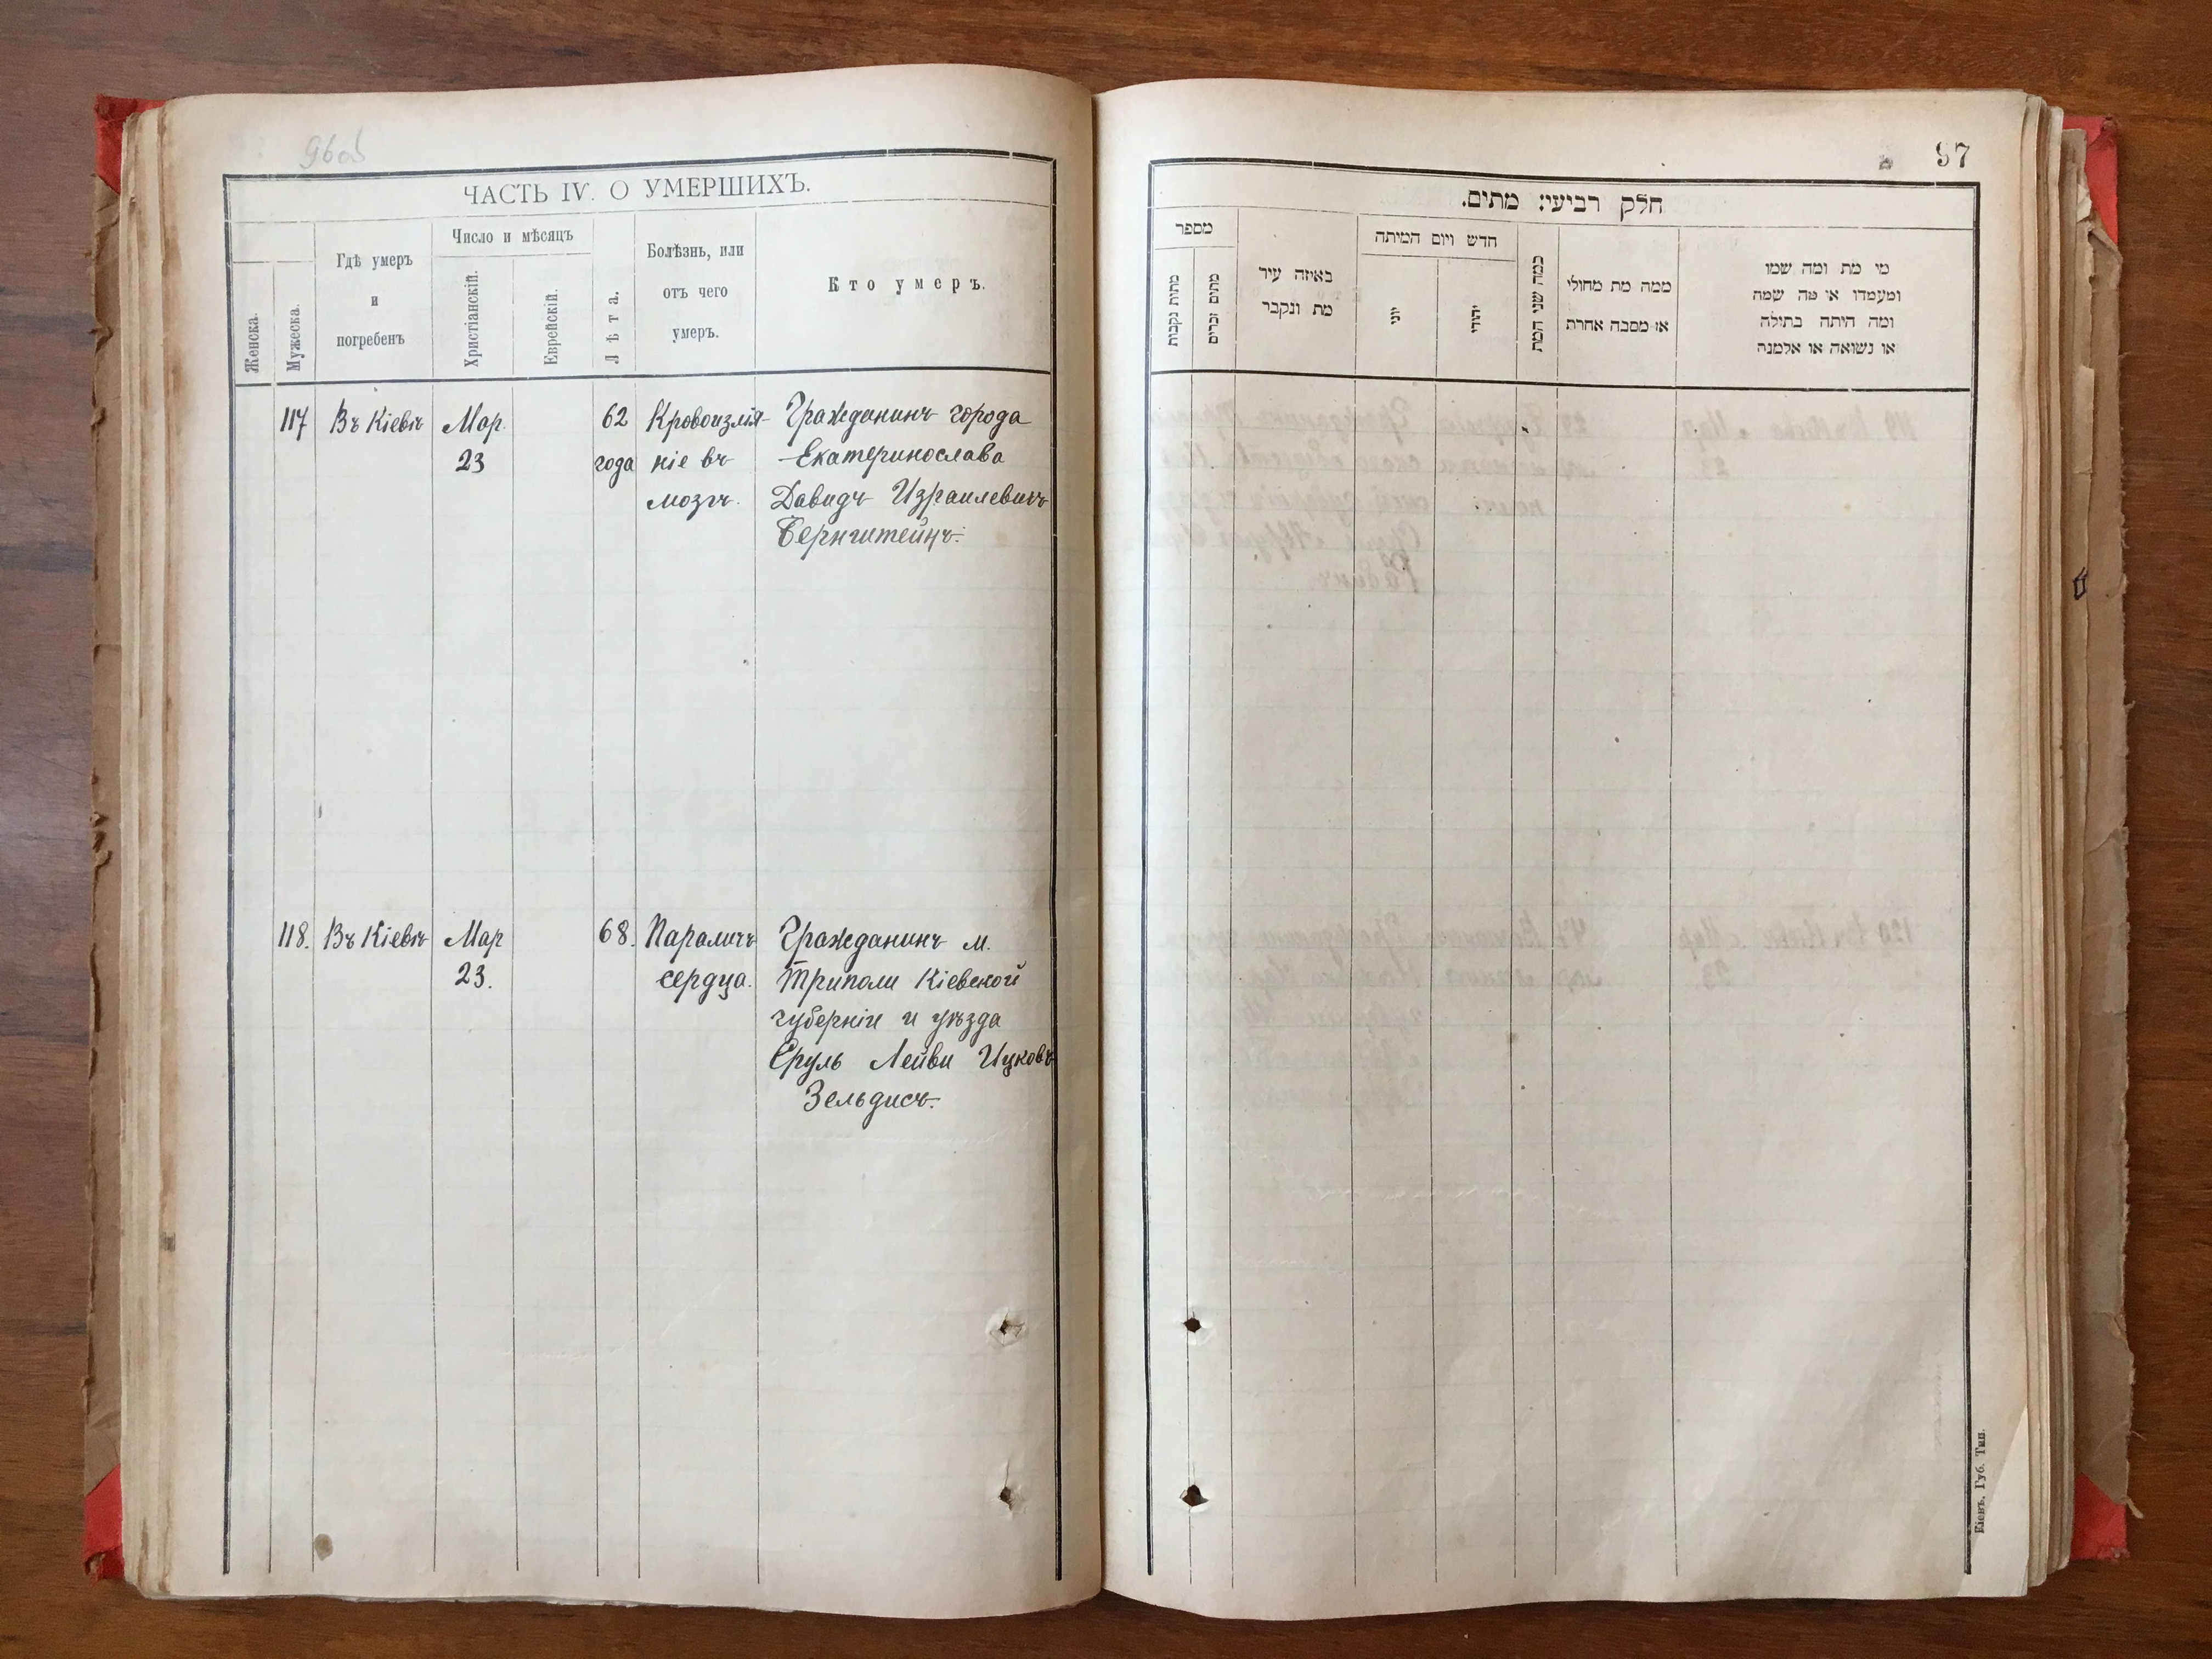 96об
ЧАСТЬ IV. О УМЕРШИХЪ.
Женска.
Мужеска.
Гдѣ умеръ
и
погребенъ
Число и мѣсяцъ
Христіанскій.
Еврейскій.
Лѣта.
Болѣзнь, или
отъ чего
умеръ.
Кто умеръ.
117 Въ Кіевѣ Мар. 62 Кровоизлія- Гражданинъ города
23 года ніе въ Екатеринослава
мозгъ. Давидъ Израилевичъ
Бернштейнъ.
118. Въ Кіевѣ Мар 68. Параличъ Гражданинъ м.
23. сердца. Триполи Кіевской
губерніи и уѣзда
Сруль Лейви Ицковъ
Зельдисъ.
97
חלק רביעי: מתים.
מספר
מתות נקבות
מתים זכרים
באיזה עיר
מת ונקבר
חדש ויום המיתה
יוני
יהודי
כמה שני המת
ממה מת מחולי
או מסבה אחרת
מי מת ומה שמו
ומעמדו או מה שמה
ומה היתה בתילה
או נשואה או אלמנה
Кіевъ. Губ. Тип.